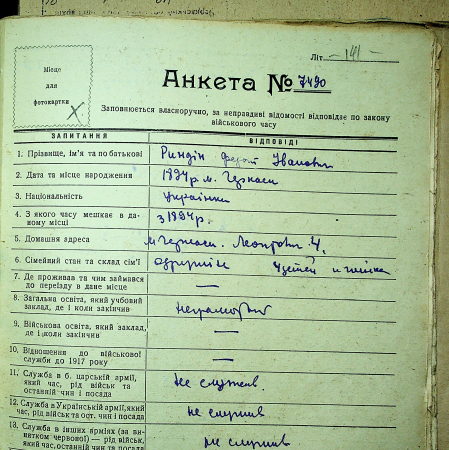 Літ. — 141 —
Місце
для
фотокартки
Анкета № 7490
Заповнюється власноручно, за неправдиві відомості відповідає по закону
військового часу
ЗАПИТАННЯ ВІДПОВІДІ
1. Прізвище, ім'я та по батькові Риндін Федот Іванович
2. Дата та місце народження 1894 р. м. Черкаси
3. Національність Українець
4. З якого часу мешкає в да-
ному місці з 1894 р.
5. Домашня адреса м. Черкаси.
6. Сімейний стан та склад сім'ї 4 детей и жинка
7. Де проживав та чим займався
до переїзду в дане місце —
8. Загальна освіта, який учбовий
заклад, де і коли закінчив неграмотний
9. Військова освіта, який заклад,
де і коли закінчив —
10. Відношення до військової
служби до 1917 року —
11. Служба в б. царській армії,
який час, рід військ та
останній чин і посада не служив.
12. Служба в Українській армії, який
час, рід військ та ост. чин і посада не служив
13. Служба в інших арміях (за ви-
нятком червоної) — рід військ,
який час, останній чин та посада не служив